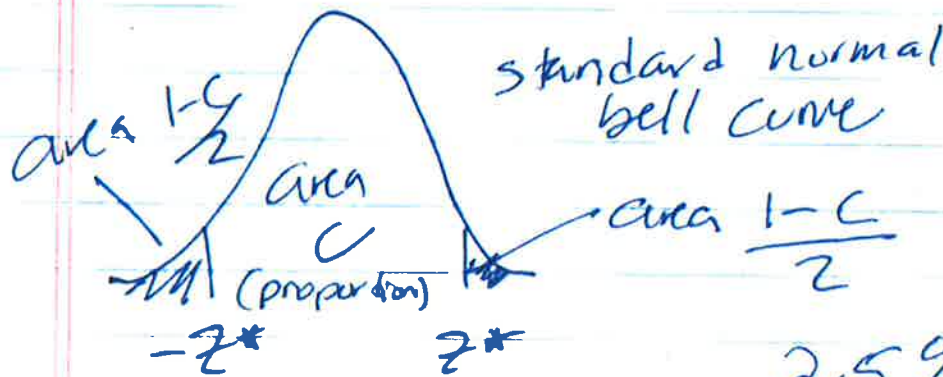 standard normal
bell curve
area 1-C/2
area
C
(proportion)
area 1-C/2
-z* z*
2.5%